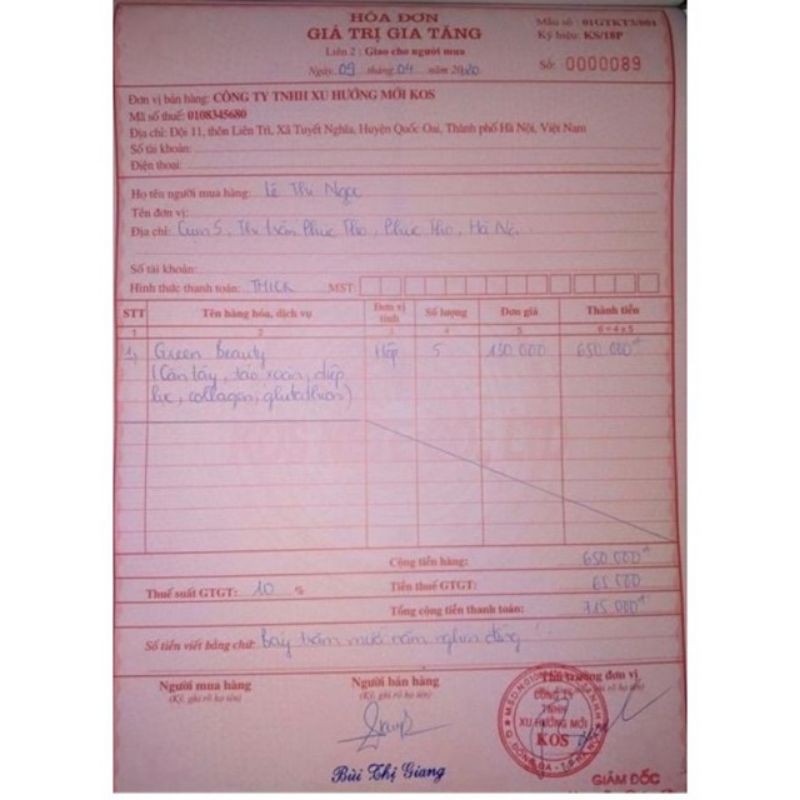 HÓA ĐƠN
GIÁ TRỊ GIA TĂNG
Liên 2: Giao cho người mua
Ngày 09 tháng 04 năm 2020
Mẫu số: 01GTKT3/001
Ký hiệu: KS/18P
Số: 0000089
Đơn vị bán hàng: CÔNG TY TNHH XU HƯỚNG MỚI KOS
Mã số thuế: 0108345680
Địa chỉ: Đội 11, thôn Liên Trì, Xã Tuyết Nghĩa, Huyện Quốc Oai, Thành phố Hà Nội, Việt Nam
Số tài khoản:
Điện thoại:
Họ tên người mua hàng: Lê Thị Ngọc
Tên đơn vị:
Địa chỉ: Cụm 5, Thị trấn Phúc Thọ, Phúc Thọ, Hà Nội.
Số tài khoản:
Hình thức thanh toán: TM/CK MST:
STT Tên hàng hóa, dịch vụ Đơn vị tính Số lượng Đơn giá Thành tiền
1 2 3 4 5 6=4x5
1, Green Beauty Hộp 5 130 000 650 000đ
(Cần tây, táo xoắn, diệp
lục, collagen, glutathion)
Cộng tiền hàng: 650 000đ
Thuế suất GTGT: 10 % Tiền thuế GTGT: 65 000
Tổng cộng tiền thanh toán: 715 000đ
Số tiền viết bằng chữ: Bảy trăm mười năm nghìn đồng
Người mua hàng
(Ký, ghi rõ họ tên)
Người bán hàng
(Ký, ghi rõ họ tên)
Thủ trưởng đơn vị
CÔNG TY
TNHH
XU HƯỚNG MỚI
KOS
Bùi Thị Giang
GIÁM ĐỐC